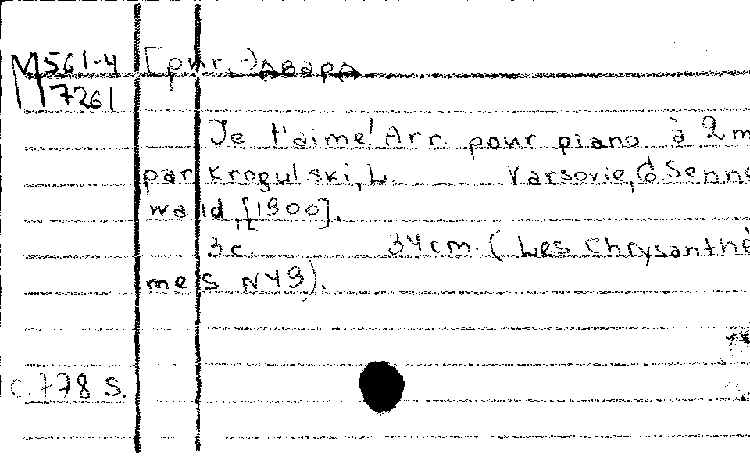 М561-4 [рук.] АВАРА
7261
Je t'aime! Arr. pour piano à 2m
par Krogulski, L. Varsovie, G Senne
wald, [1900].
3c. 34cm. (Les Chrysanthè
mes N49).
C.778 S.